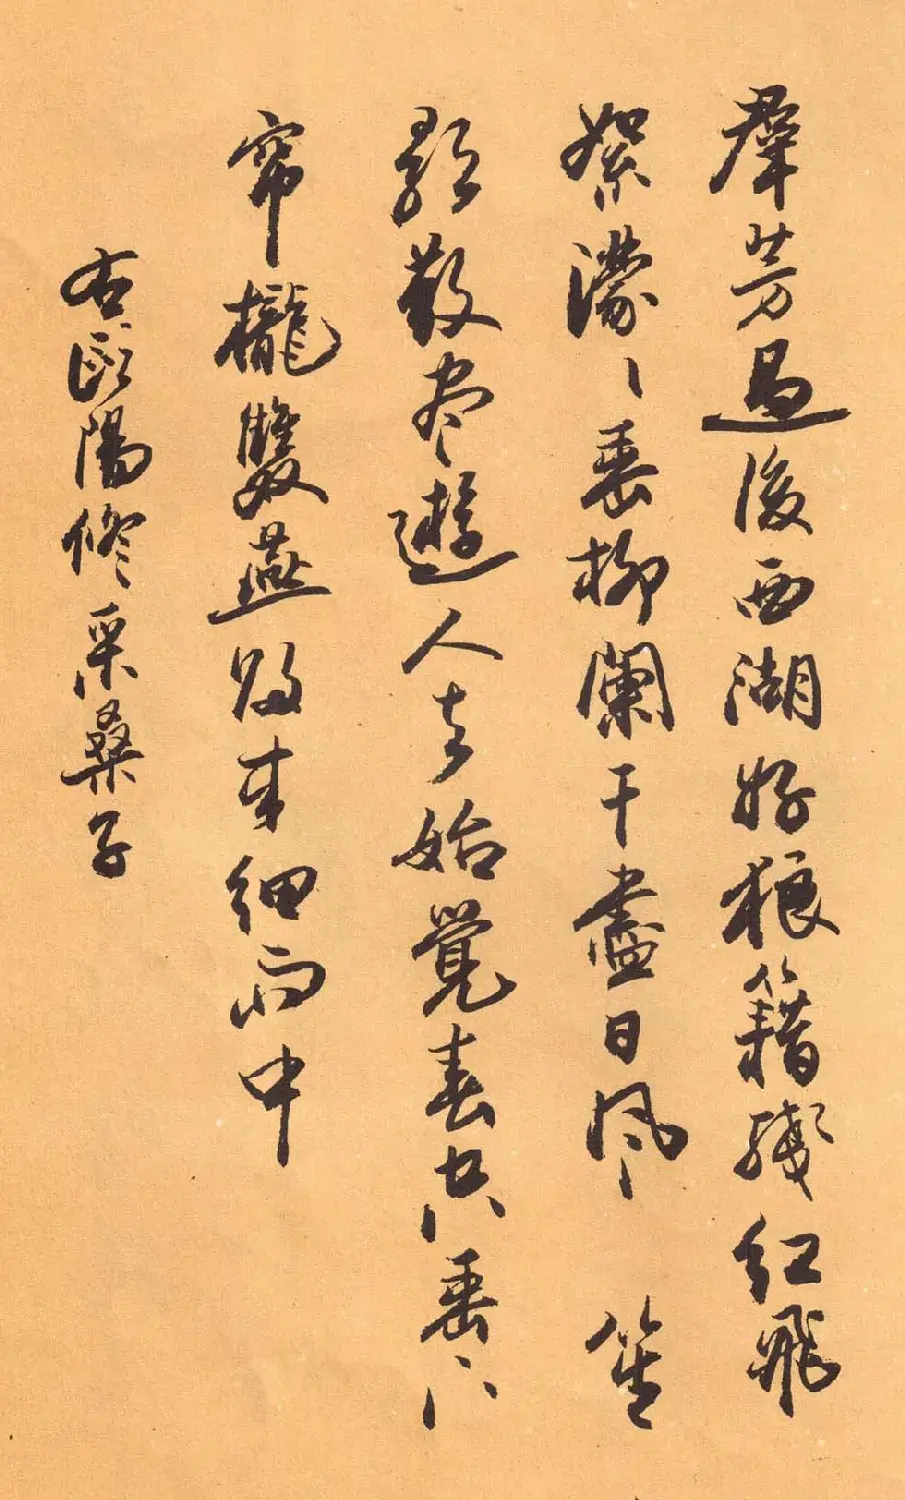 羣芳過後西湖好狼籍殘紅飛
絮濛〻垂柳闌干盡日風 笙
歌散尽遊人去始覺春空垂下
帘櫳雙燕歸来細雨中
右歐陽修采桑子